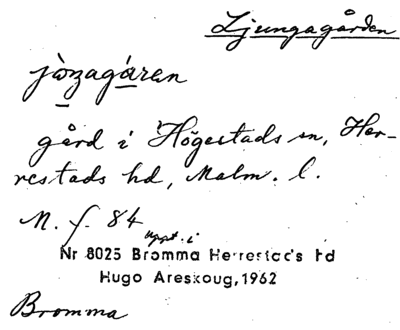 Ljungagården
jòzagáren
gård i Högestads sn, Her-
restads hd, Malm. l.
M. f. 84
uppt. i
Nr 8025 Bromma Herrestad's hd
Hugo Areskoug, 1962
Bromma